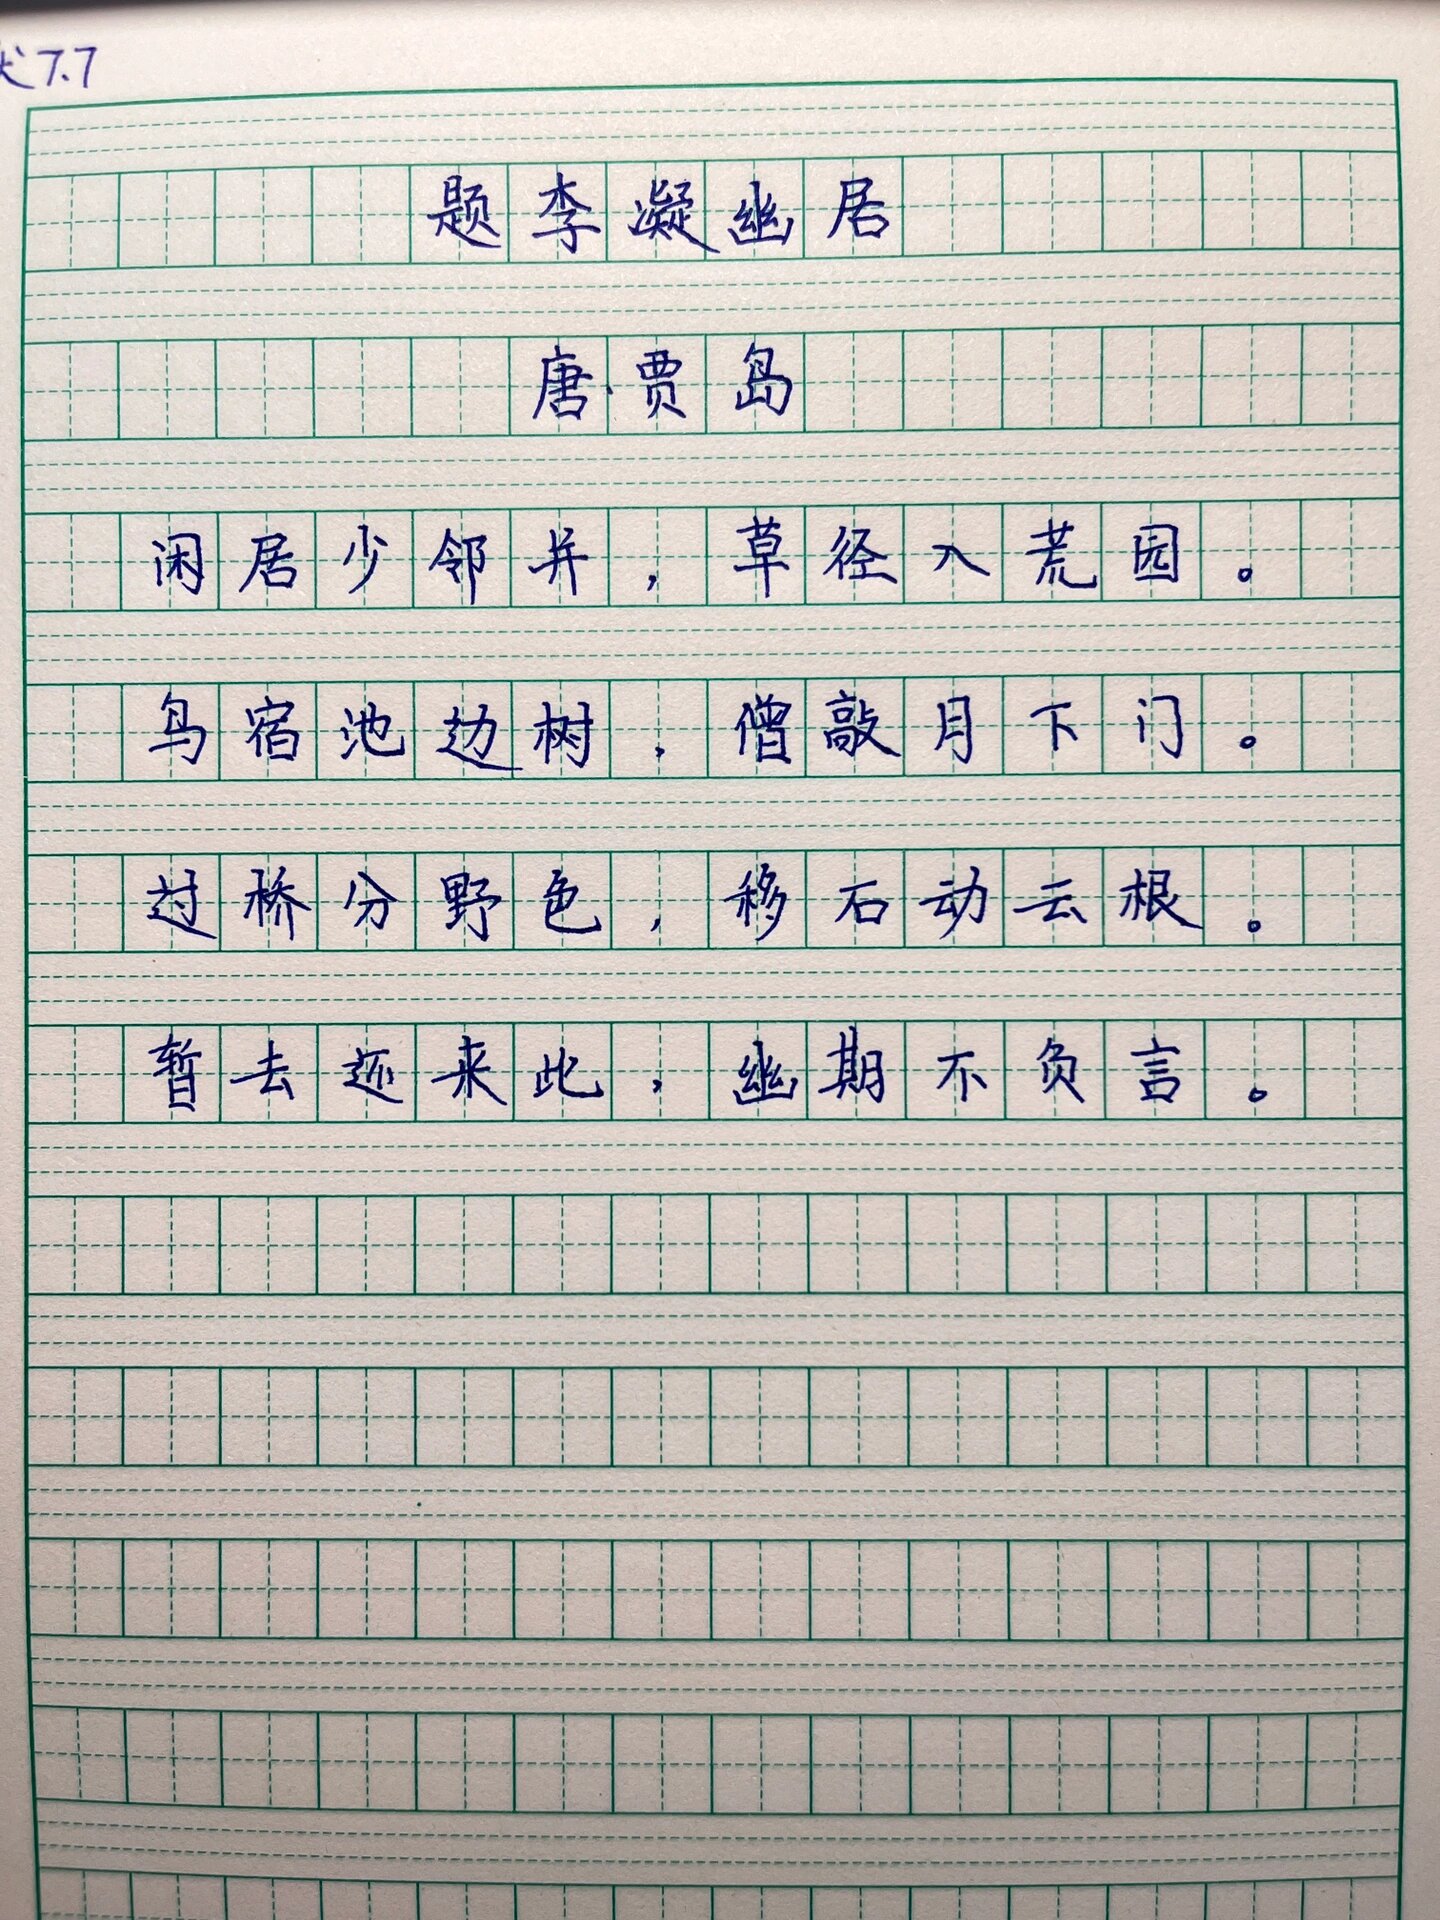 7.7
题李凝幽居
唐·贾岛
闲居少邻并，草径入荒园。
鸟宿池边树，僧敲月下门。
过桥分野色，移石动云根。
暂去还来此，幽期不负言。